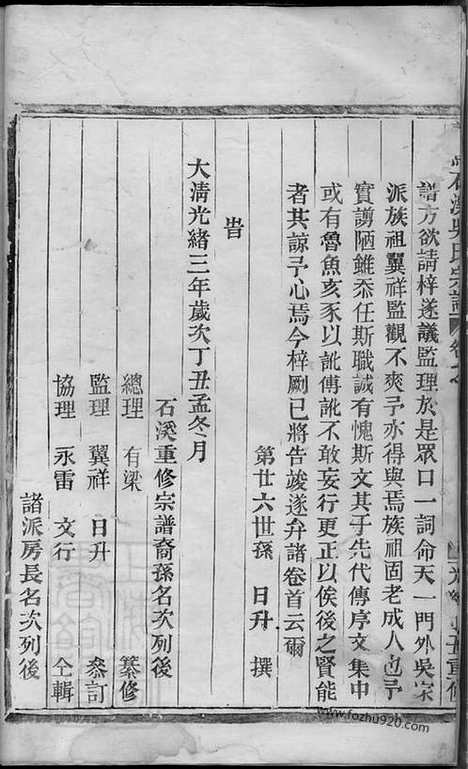 石溪吳氏宗譜 卷之
譜方欲請梓遂議監理於是眾口一詞命天一門外吳家
派族祖翼祥監觀不爽予亦得與焉族祖固老成人也予
實謭陋雖忝任斯職誠有愧斯文其于先代傳序文集中
或有魯魚亥豕以訛傳訛不敢妄行更正以俟後之賢能
者其諒予心焉今梓劂已將告竣遂弁諸卷首云爾
第廿六世孫 日升 撰
旹
大清光緒三年歲次丁丑孟冬月
石溪重修宗譜裔孫名次列後
總理 有梁 纂修
監理 翼祥 日升 叅訂
協理 永雷 文行 仝輯
諸派房長名次列後
www.fozhu920.com